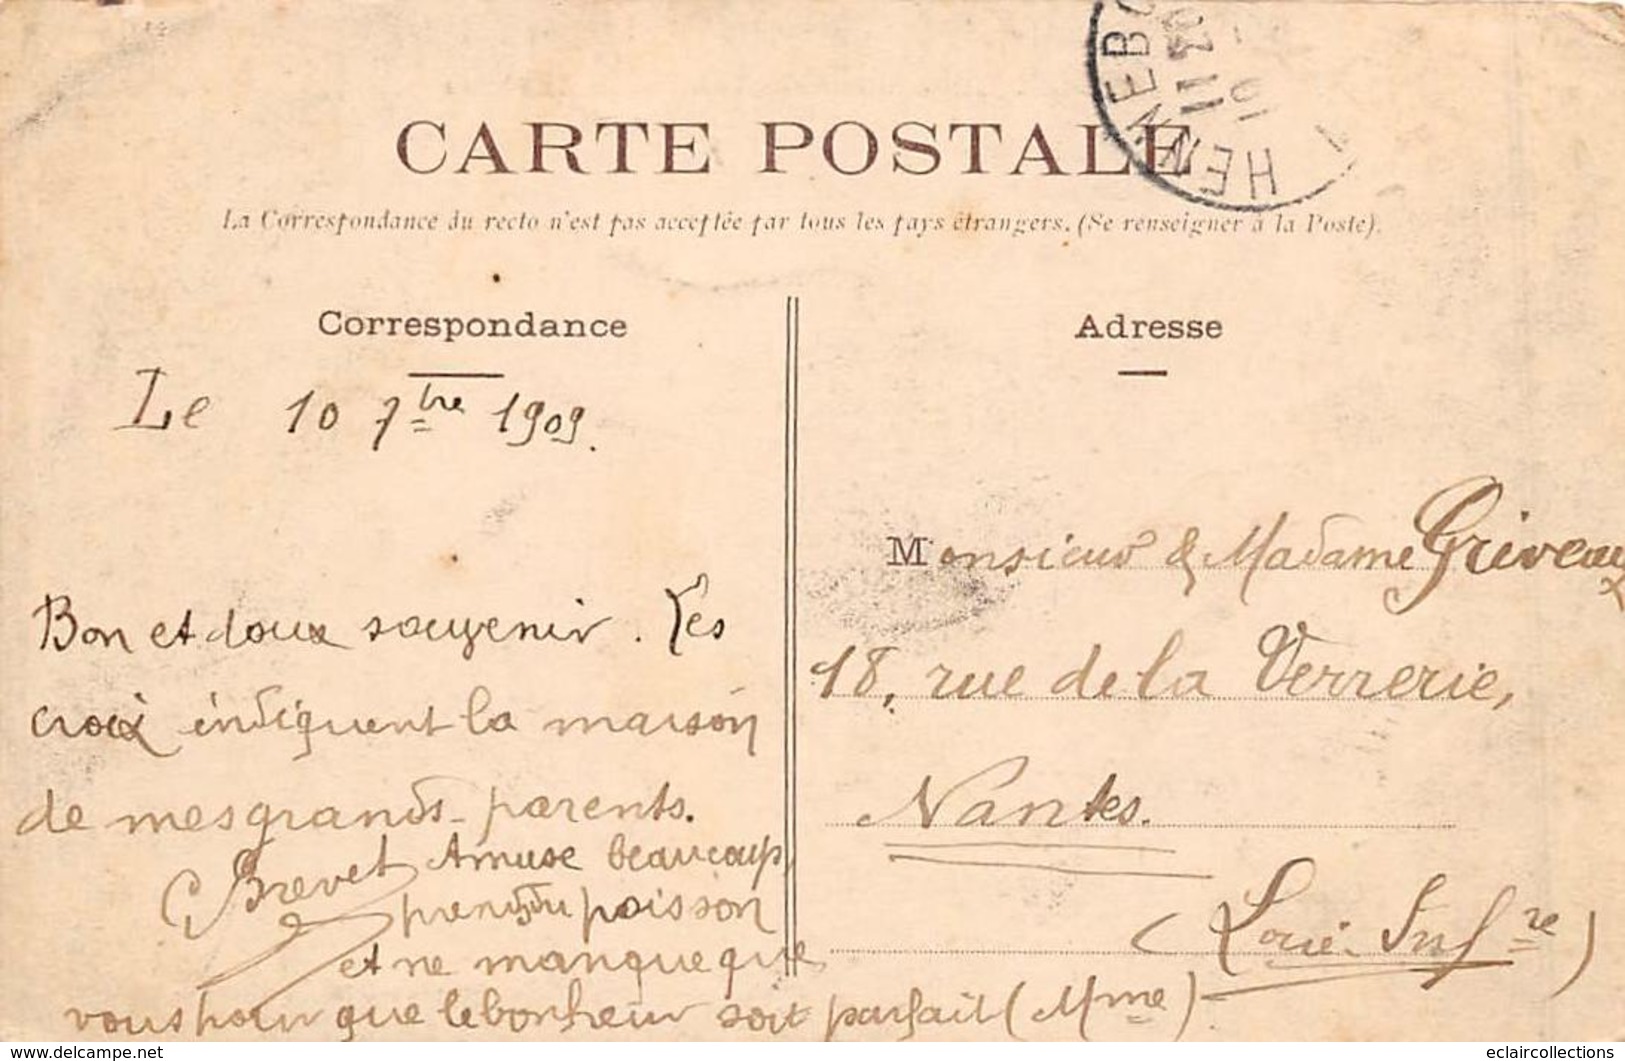 CARTE POSTALE
HENNEB
La Correspondance du recto n'est pas acceptée par tous les pays étrangers. (Se renseigner à la Poste).
Correspondance
Le 10 7bre 1909.
Bon et doux souvenir. Les
croix indiquent la maison
de mes grands-parents.
Brevet Amuse beaucoup,
prends du poisson
et ne manque que
vous pour que le bonheur soit parfait (Mme).
Adresse
Monsieur & Madame Griveau
18, rue de la Verrerie,
Nantes.
(Loire-Infre)
delcampe.net
eclaircollections